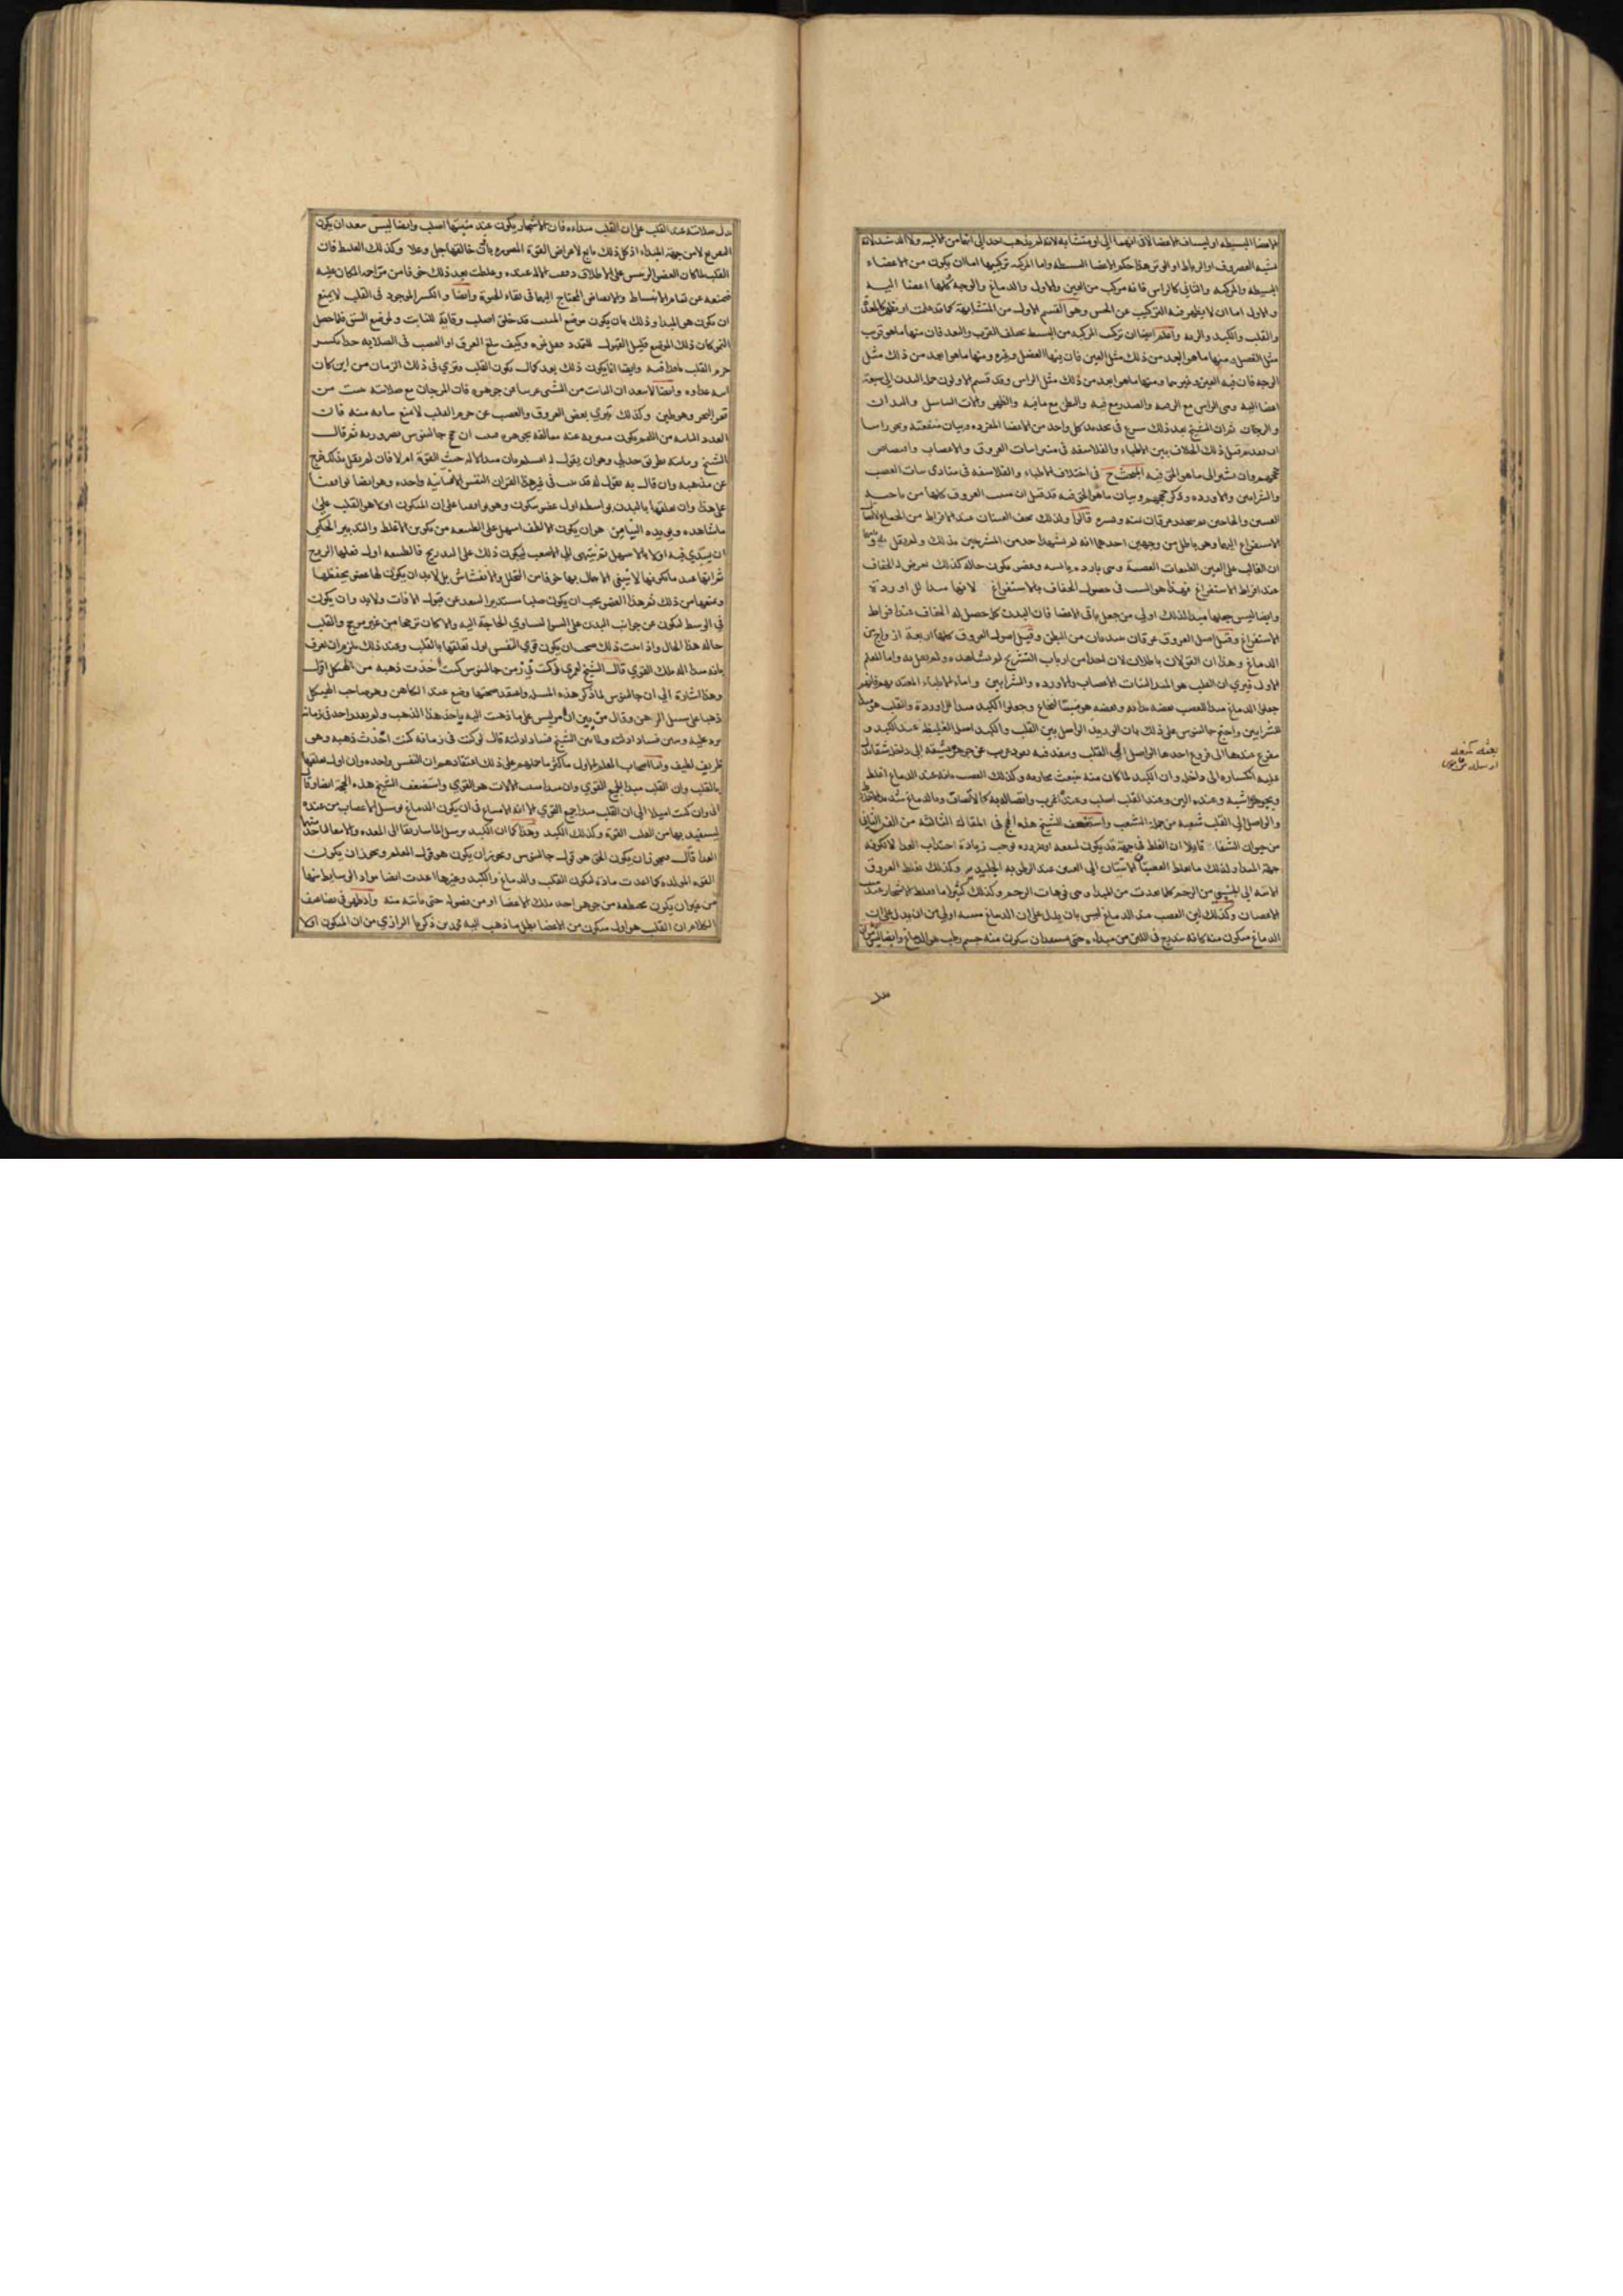 الاعضا البسيطه او ليس في الاعضا الالية
شبيه الغضروف او الرباط او الوتر هذا حكم الاعضا البسيطه واما المركبه تركيبها اما ان يكون من الاعضاء
البسيطه والمركبه والثاني كالراس فانه مركب من العين والاول والدماغ والوجه كلها اعضا اليه
والاول اما ان لا يظهر فيه التركيب عن الحس وهو القسم الاول من المتشابهة كما قد علمت او يظهر كالمعدة
والقلب والكبد والريه واعلم ايضا ان تركب المركبه من البسيط مختلف القرب والبعد فان منها ما هو قريب
مثل العضل ومنها ما هو ابعد من ذلك مثل العين فان فيها العضل وغيره ومنها ما هو ابعد من ذلك مثل
الوجه فان فيه العين وغيرها ومنها ما هو ابعد من ذلك مثل الراس وقد قسم الاولون جملة البدن الى سبعة
اعضا اليه وهي الراس مع الرقبه والصدر مع ما فيه والبطن مع ما فيه والظهر والات التناسل واليدان
والرجلان ثم ان الشيخ بعد ذلك شرع في تحديد كل واحد من الاعضا المفرده وبيان منفعته ونحن راينا
ان نقدم قبل ذلك الخلاف بين الاطباء والفلاسفه في منبت راسات العروق والاعصاب واقتصاص
حججهم وان نشير الى ما هو الحق فيه المبحث ح في اختلاف الاطباء والفلاسفه في مبادي نبات العصب
والشرايين والاورده وذكر حججهم وبيان ما هو الحق فيه قد قيل ان منبت العروق كلها من ناحيه
العينين والحاجبين ثم ينحدر عرقان يمنه ويسره قالوا ولذلك تجف العينان عند الافراط من الجماع
الاستفراغ اليها وهو باطل من وجهين احدهما انه لم يشهد احد من المشرحين بذلك ولم ينقل
ان الغالب على العين الطبقات العصبية وهي بارده يابسه وعضو يكون حاله كذلك تعرض له الجفاف
عند افراط الاستفراغ فهذا هو السبب في حصول الجفاف بالاستفراغ لا انها مبدا للاوردة
وايضا ليس جعلها مبدا لذلك اولى من جعل باقي الاعضا فان البدن كله حصل له الجفاف عند افراط
الاستفراغ وقيل اصل العروق عرقان يمتدان من البطن وقيل اصول العروق كلها اربعة ازواج من
الدماغ وهذان القولان باطلان لان احدا من ارباب التشريح لم يشاهده ولم يقل به واما المعلم
الاول فيرى ان القلب هو المبدا لنبات الاعصاب والاورده والشرايين واما الاطباء المعتد بهم فانهم
جعلوا الدماغ مبدا للعصب بعضه بذاته وبعضه هو منبت النخاع وجعلوا الكبد مبدا للاوردة والقلب هو مبدا
للشرايين واحتج جالينوس على ذلك بان الوريد الواصل بين القلب والكبد اصله الغليظ عند الكبد و
يتفرع عندها الى فروع احدها الواصل الى القلب
عليه انكساره الى داخل وان الكبد لما كان منه وكذلك العصب فانه عند الدماغ اغلظ
وبجوهره اشبه وعنده الين وعند القلب اصلب
والواصل الى القلب شعبه من جملة الشعب واستضعف الشيخ هذه الحجج في المقالة الثالثه من الفن الثاني
من حيوان الشفا قايلا ان الغلظ في جهة قد يكون لمنفعه او ضروره توجب زيادة اجتذاب الغذا لا لكونه
جهة المبدا ولذلك ما تغلظ العصبتان الاتيتان الى العين عند الرطوبه الجليديه وكذلك تغلظ العروق
الاتيه الى الجنين من الرحم كلما بعدت من المبدا وهي فوهات الرحم وكذلك كثيرا ما تغلظ الاشجار عند
الاغصان وكذلك لين العصب عند الدماغ ليس بان يدل على ان الدماغ منبته اولى من ان يدل على ان
الدماغ يتكون منه كانه يتدرج في اللين من مبداه حتى يستعد ان يتكون منه جسم رطب هو الدماغ وايضا ليس
يدل صلابته عند القلب على ان القلب مبداه فان الاشجار يكون عند منبتها اصلب وايضا ليس يبعد ان يكون
التفريع لا من جهة المبداء اذ كل ذلك تابع لاغراض القوة المصوره باذن خالقها جل وعلا وكذلك الغلظ فان
القلب لما كان العضو الرئيس على الاطلاق وغلظت بعد ذلك خوفا من مزاحمه المكان عليه
فتمنعه عن تمام الانبساط والانقباض المحتاج اليهما في بقاء الحيوة وايضا وانكسر الموجود في القلب لا يمنع
ان يكون هو المبدا وذلك بان يكون موضع المنبت قد خلق اصلب وقاية للنابت ولموضع الشق فلما حصل
النمو كان ذلك الموضع قليل القبول للتمدد وكيف يبلغ العرق او العصب في الصلابه حدا يكسر
جرم القلب نافذا فيه وايضا انما يكون ذلك بعد كمال تكون القلب ويرى في ذلك الزمان من اين كان
ياتيه غذاوه وايضا لا يبعد ان النبات من الشي غريبا عن جوهره فان المرجان مع صلابته ينبت من
قعر البحر وهو طين وكذلك تبري بعض العروق والعصب عن جرم القلب لا يمنع نباته منه فان
الغدد النابته من اللحم يكون متبريه عنه مخالفه بجوهره فثبت ان حجج جالينوس غير ضروريه ثم قال
الشيخ ونناسبه بطريق جدلي وهو ان يقول له اتسلم بان مبدا الاله حيث القوة ام لا فان لم يقل بذلك خرج
عن مذهبه وان قال به نقول له قد ثبت في غير هذا الفن ان النفس الانسانيه واحده وهو ايضا يوافقنا
على هذا وان تعلقها بالبدن بواسطه اول عضو يتكون وهو يوافقنا على ان المتكون اولا هو القلب على
ما شاهده ويويده القياس وهو ان يكون الالطف اسهل على الطبيعه من تكوين الاغلظ والتدبير الحكمي
ان يبتدي فيه اولا بالاسهل ثم ينتهي الى الاصعب ليكون ذلك على التدريج فالطبيعه اول فعلها الروح
ثم انها عند ما تكونها لا تبقى خوفا من التحلل والانفشاش بل لا بد ان يكون لها عضو يحفظها
ويمنعها من ذلك ثم هذا العضو يجب ان يكون صلبا مستديرا ليبعد عن قبول الافات ولا بد وان يكون
في الوسط لتكون عن جوانب البدن على السوا لتساوي الحاجة اليه والا كان ترجيحا من غير مرجح والقلب
حاله هذا الحال واذا ثبت ذلك صح ان يكون قوي النفس اول تعلقها بالقلب وعند ذلك يلزم ان يعرف
بانه مبدا لاله تلك القوي قال الشيخ لعمري لو كنت في زمن جالينوس كنت اخذت ذهبه من الهيكل اقول
وهذا اشارة الى ان جالينوس لما ذكر هذه المسله واعتقد صحتها وضع عند الكاهن وهو صاحب الهيكل
ذهبا على سبيل الرهن وقال من بين ان الامر ليس على ما ذهبت اليه ياخذ هذا الذهب ولم يقدر احد في زمانه
يرد عليه ويبين فساد ادلته ولما بين الشيخ فساد ادلته قال لو كنت في زمانه كنت اخذت ذهبه وهو
ظريف لطيف واما اصحاب المعلم الاول فاكثر ما حملهم على ذلك اعتقادهم ان النفس واحده وان اول تعلقها
بالقلب وان القلب مبدا جميع القوي وان مبدا منبت الالات هو القوي واستضعف الشيخ هذه الحجة ايضا وقال
اني وان كنت اميل الى ان القلب مبدا جميع القوي الا انه لا امتناع في ان يكون الدماغ يرسل الاعصاب من عنده
ليستفيد بها من القلب القوة وكذلك الكبد وهذا كما ان الكبد يرسل الماساريقا الى المعده والامعا لتاخذ منها
الغذا قال فيجوز ان يكون الحق هو قول جالينوس ويجوز ان يكون هو قول المعلم ويجوز ان يكون
القوه المولده كما اعدت مادة لتكون القلب والدماغ والكبد وغيرها اعدت ايضا مواد الوسايط بينها
من غير ان يكون منقطعه من جوهر احد تلك الاعضا او من فضوله حتى نابته منه واذ ظهر في تضاعيف
الكلام ان القلب هو اول متكون من الاعضا بطل ما ذهب اليه محمد بن زكريا الرازي من ان المتكون اولا